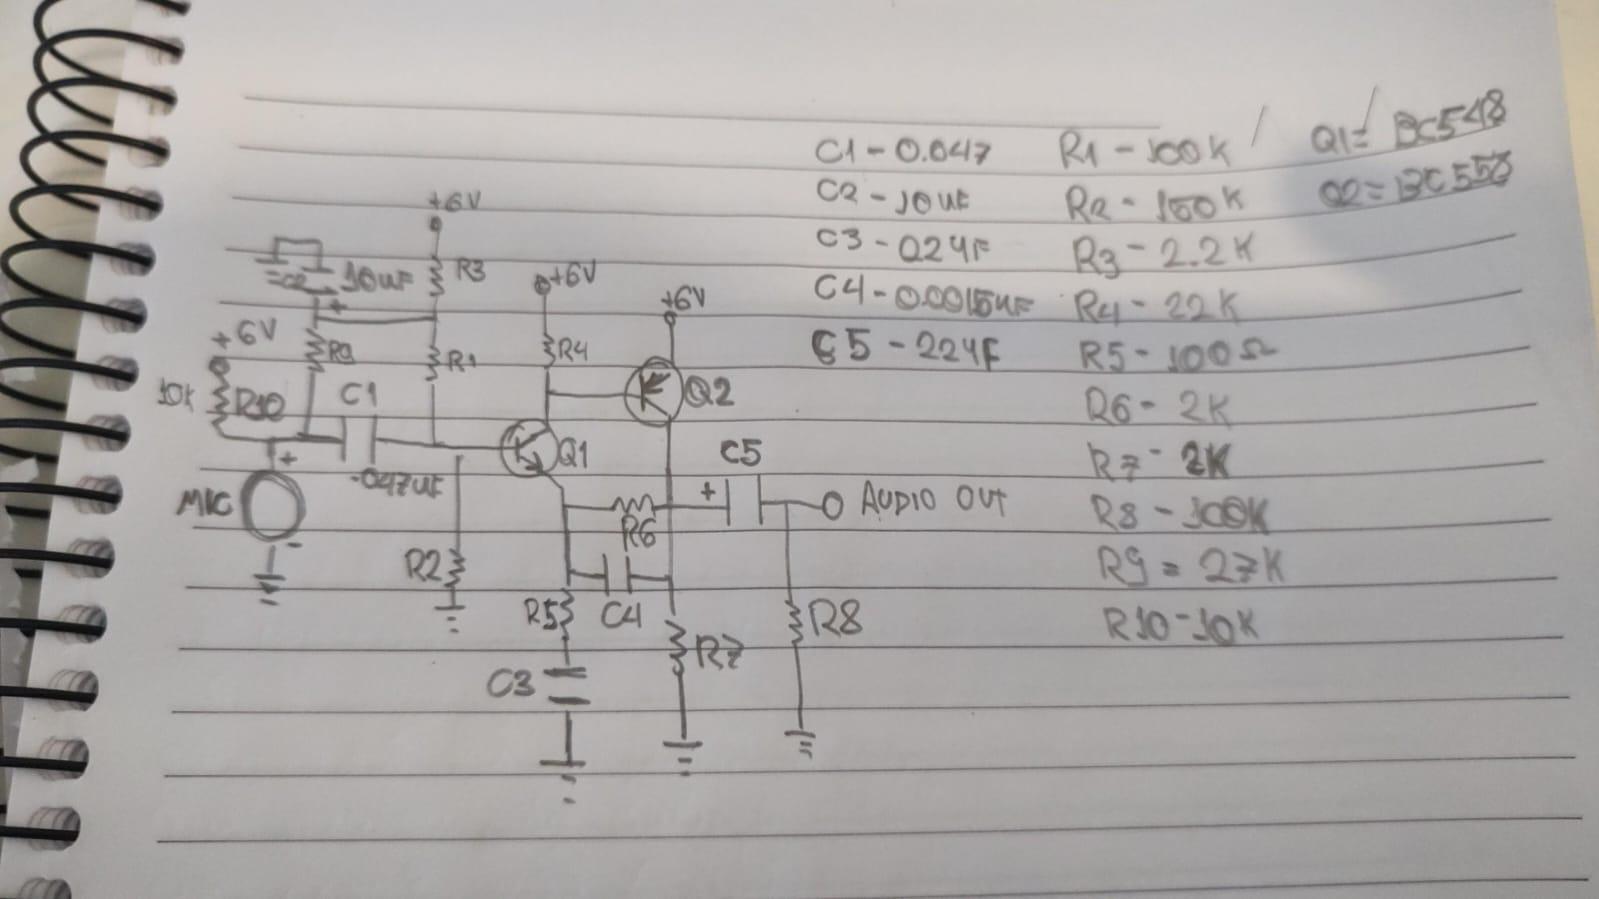 C1 - 0.047
C2 - 10uF
C3 - 022uF
C4 - 0.0015uF
C5 - 22uF
R1 - 100K
R2 - 150K
R3 - 2.2K
R4 - 22K
R5 - 100Ω
R6 - 2K
R7 - 2K
R8 - 100K
R9 = 27K
R10 - 10K
Q1 = BC548
Q2 = BC558
+6V
R3
10uF
+
+6V
+6V
+6V
R9
R1
R4
Q2
10K
R10
C1
Q1
C5
+
.047uF
MIC
+
-
+
AUDIO OUT
R6
R2
R5
C4
R8
R7
C3